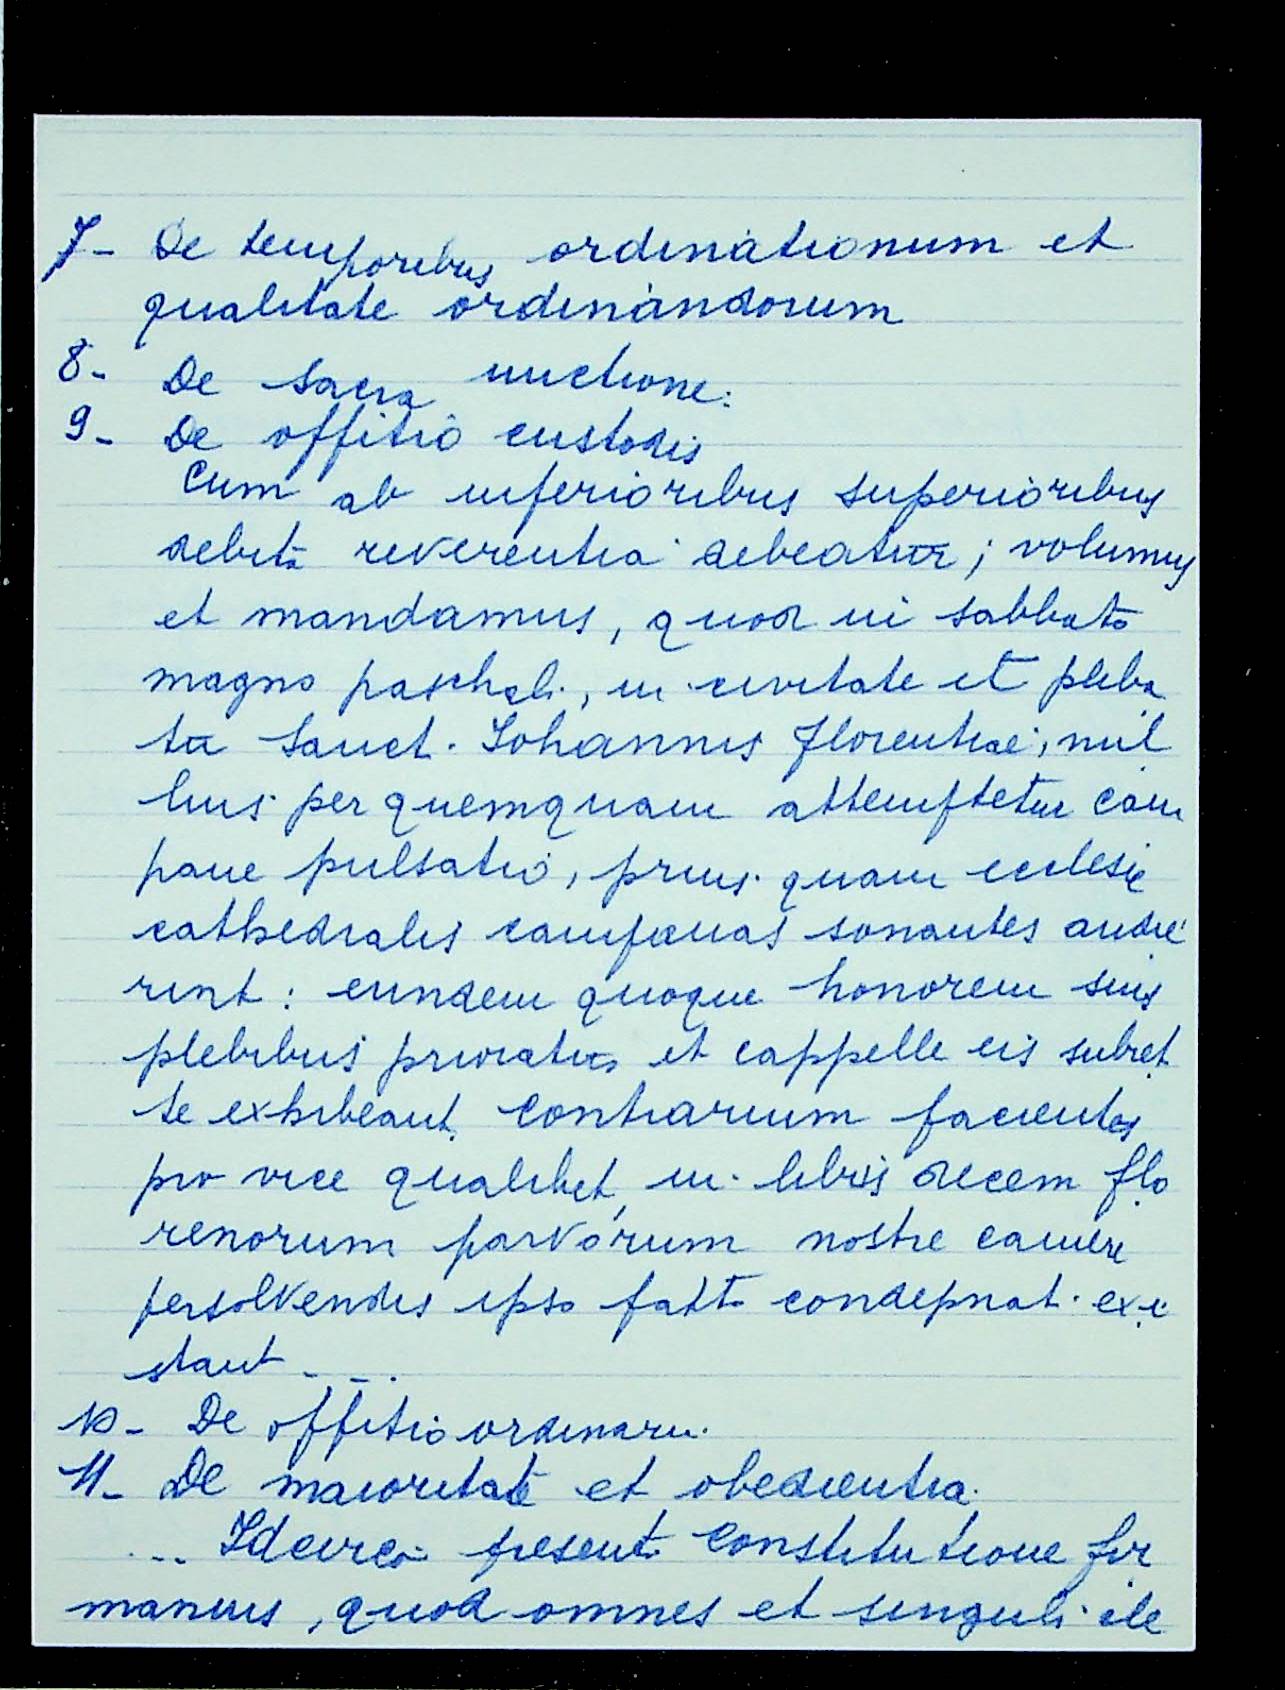 7- De temporibus ordinationum et
qualitate ordinandorum
8- De sacra unctione:
9- De offitio custodis
Cum ab inferioribus superioribus
debita reverentia debeatur; volumus
et mandamus, quod in sabbato
magno paschali, in civitate et pleba
tu Sancti Johannis Florentiae, nul
lus per quemquam attemptetur cam
pane pulsatio, prius quam ecclesie
cathedralis campanas sonantes audie
rint: eundem quoque honorem suis
plebibus prioratus et cappelle eis subiec
te exhibeant. Contrarium facientes
pro vice qualibet, in libris decem flo
renorum parvorum nostre camere
persolvendis ipso fatto condepnati exi
stant ....
10- De offitio ordinarii.
11- De maioritate et obedientia.
... Idcirco presenti Constitutione fir
mamus, quod omnes et singuli cle